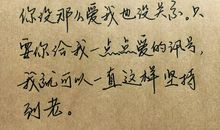 你没那么爱我也没关系。只
要你给我一点点爱的讯号,
我就可以一直这样坚持
到老。